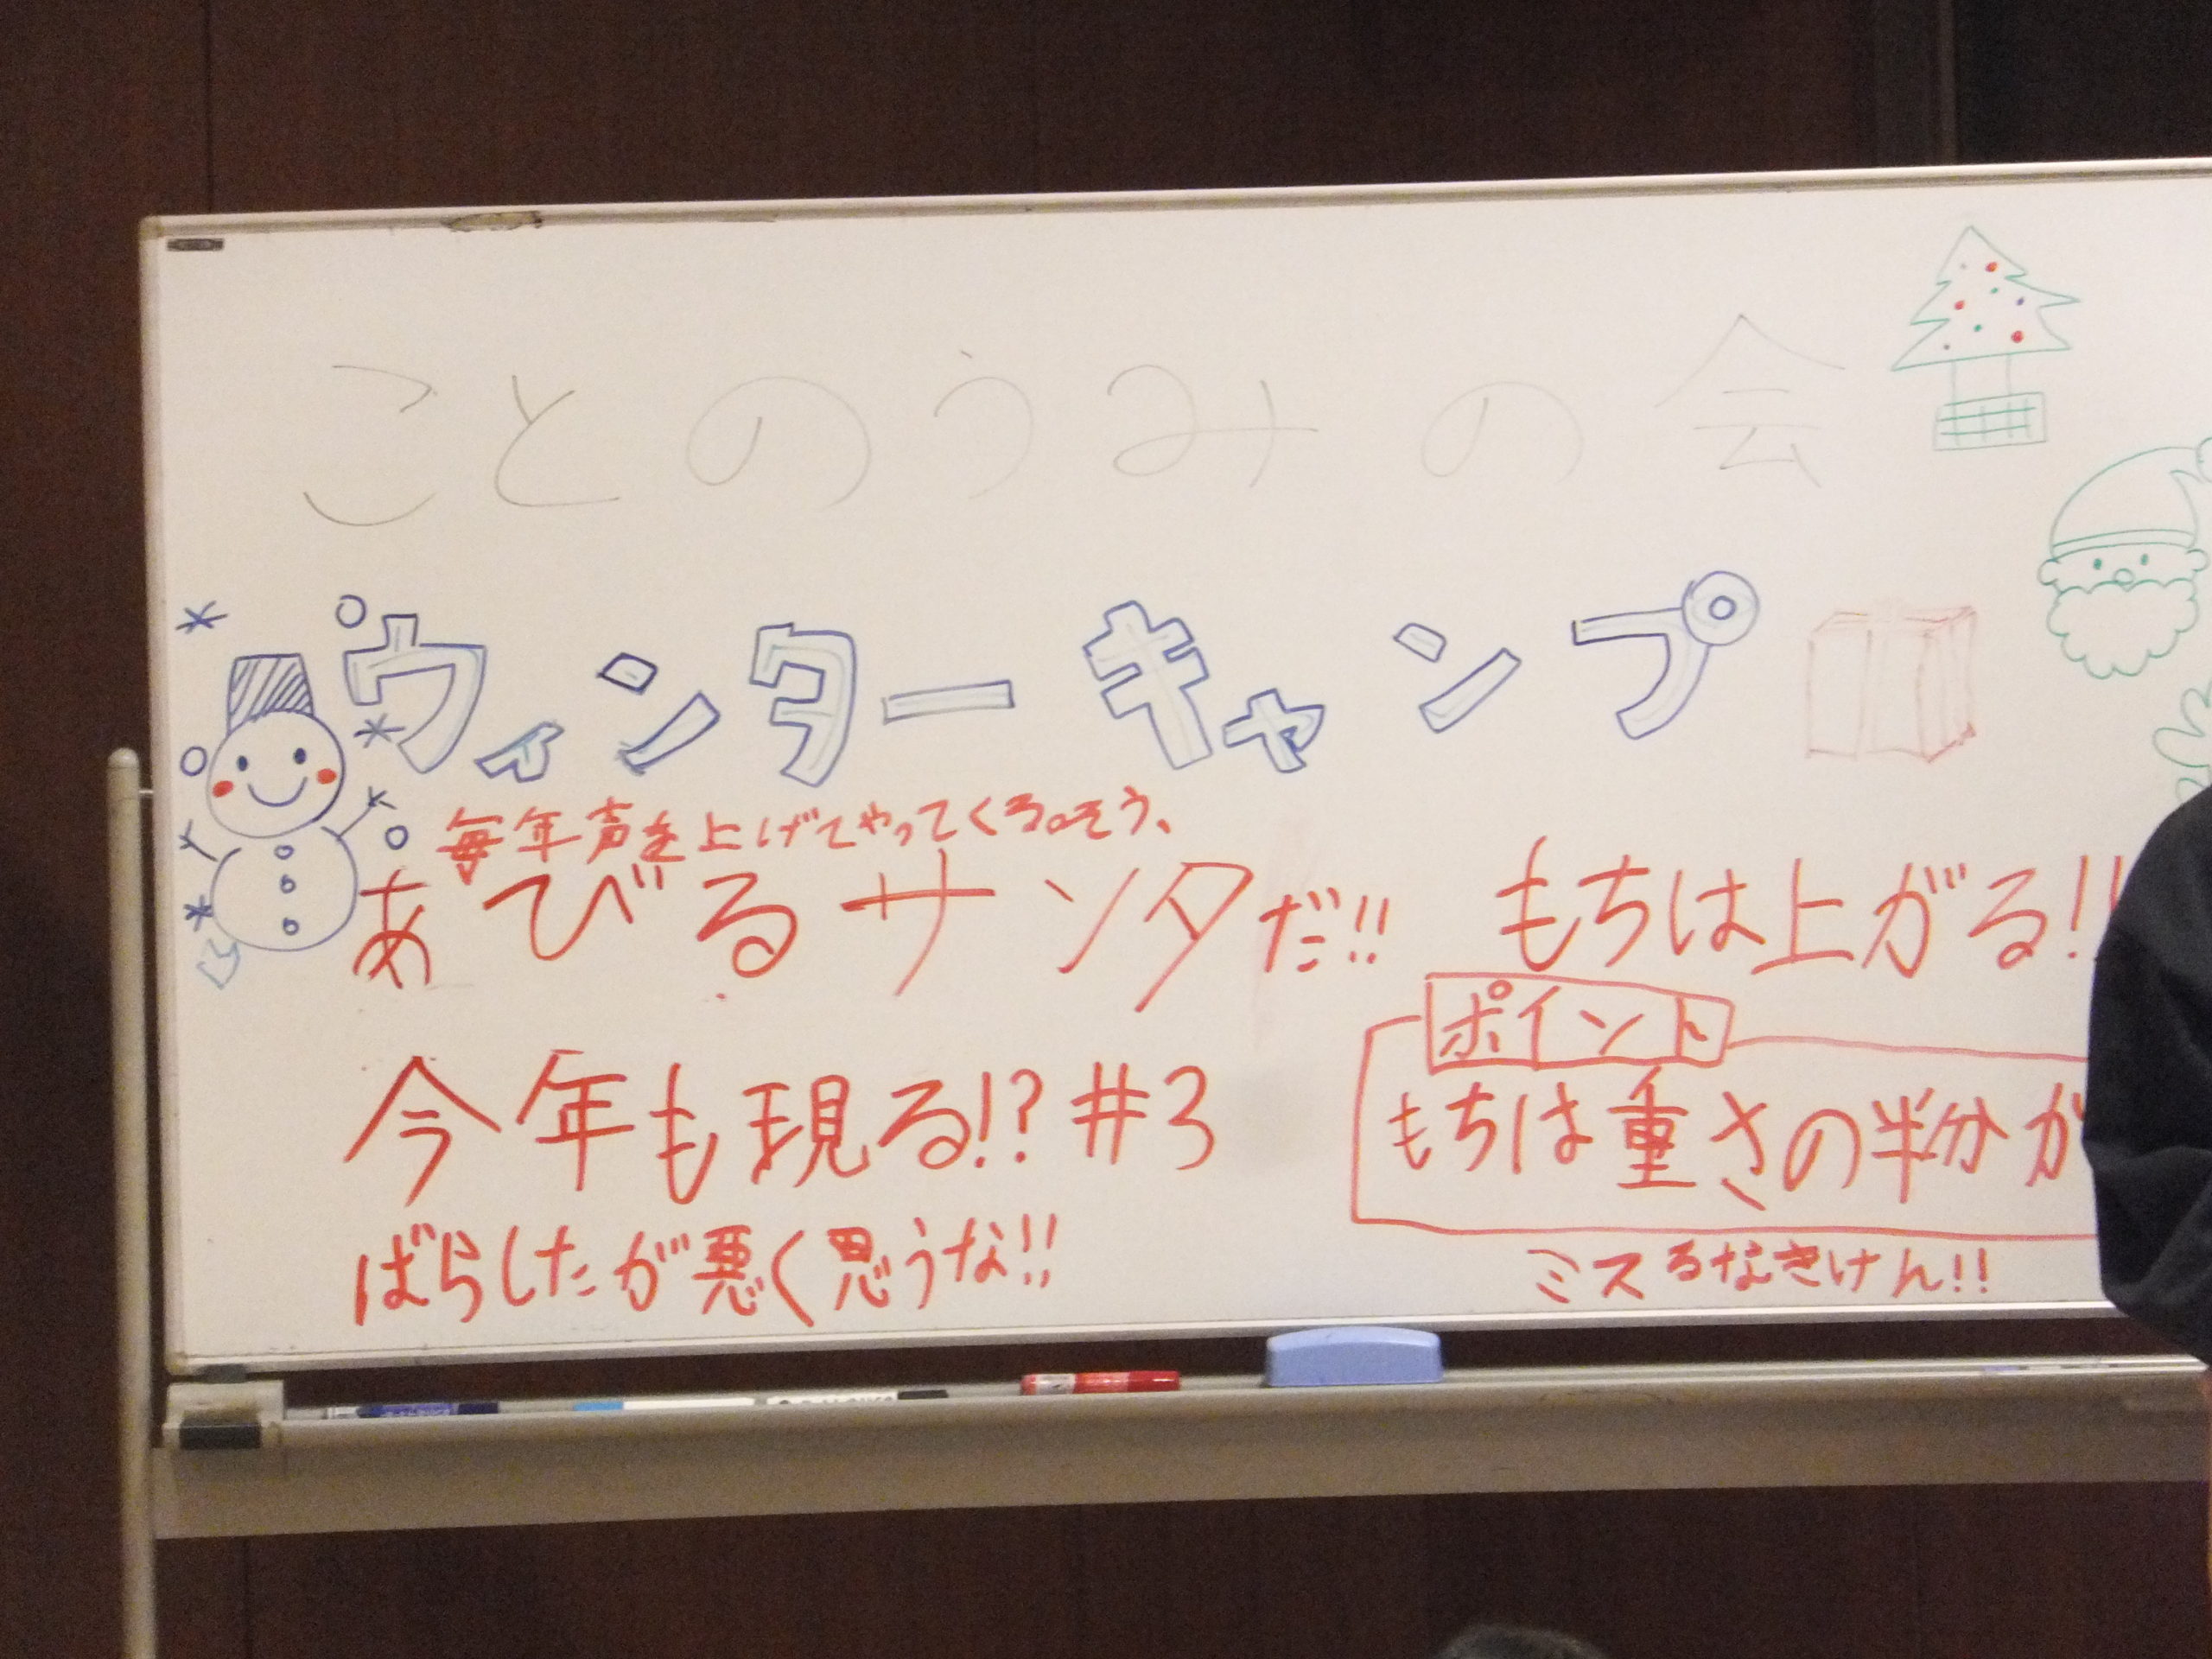 ことのうみの会
ウィンターキャンプ
毎年声を上げてやってくる。そう、
あびるサンタだ!!
今年も現る!?#3
ばらしたが悪く思うな!!
もちは上がる!!
ポイント
もちは重さの半分が
ミスるなきけん!!